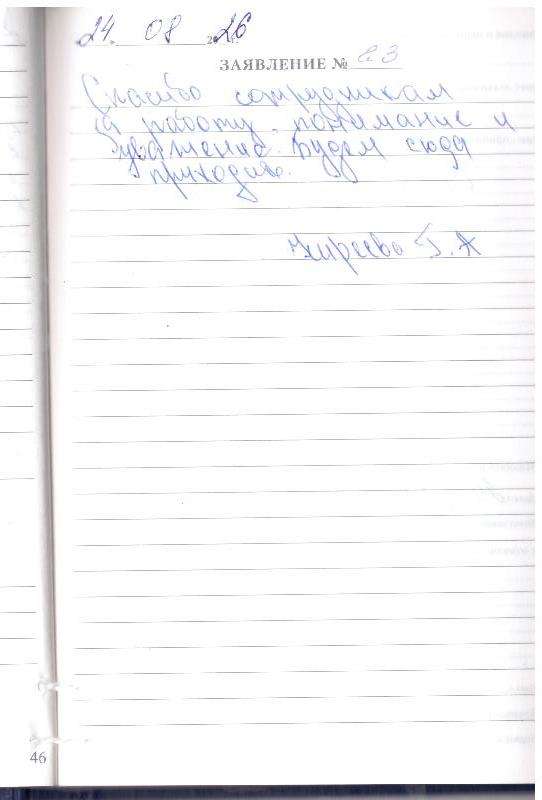 24. 08 2026
ЗАЯВЛЕНИЕ № 23
Спасибо сотрудникам
за работу, понимание и
уважение. Будем сюда
приходить.
Киреева Г. А
46